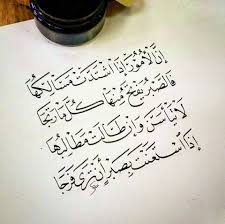 إِنَّ الأُمُورَ إِذَا اشْتَدَّتْ مَسَالِكُهَا
فَالصَّبْرُ يَفْتَحُ مِنْهَا كُلَّ مَا رَتَجَا
لَا تَيْأَسَنَّ وَإِنْ طَالَتْ مَطَالِبُهَا
إِذَا اسْتَعَنْتَ بِصَبْرٍ أَنْ تَرَى فَرَجَا